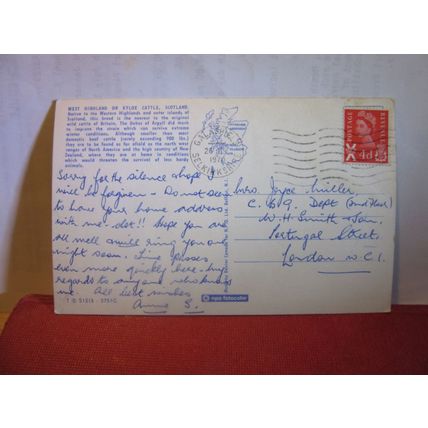 WEST HIGHLAND OR KYLOE CATTLE, SCOTLAND.
Native to the Western Highlands and outer islands of
Scotland, this breed is the nearest to the original
wild cattle of Britain. The Dukes of Argyll did much
to improve the strain which can survive extreme
winter conditions. Although smaller than most
domestic beef cattle (rarely exceeding 900 lbs.)
they are to be found as far afield as the north west
ranges of North America and the high country of New
Zealand, where they are at home in conditions
which would threaten the survival of less hardy
animals.
Sorry for the silence & hope
will be forgiven - Do not seem
to have your home address
with me - dot!! Hope you are
all well & will ring you one
night soon. Time passes
even more quickly here. My
regards to anyone who knows
me. All best wishes
Anne S.
GALASHIELS
SELKIRKSHIRE
1970
POSTAGE
REVENUE
4D
Mrs. Joyce Miller,
C. B/9. Dept (2nd Floor)
W. H. Smith & Son,
Portugal Street,
London W.C.1.
npo fotocolor